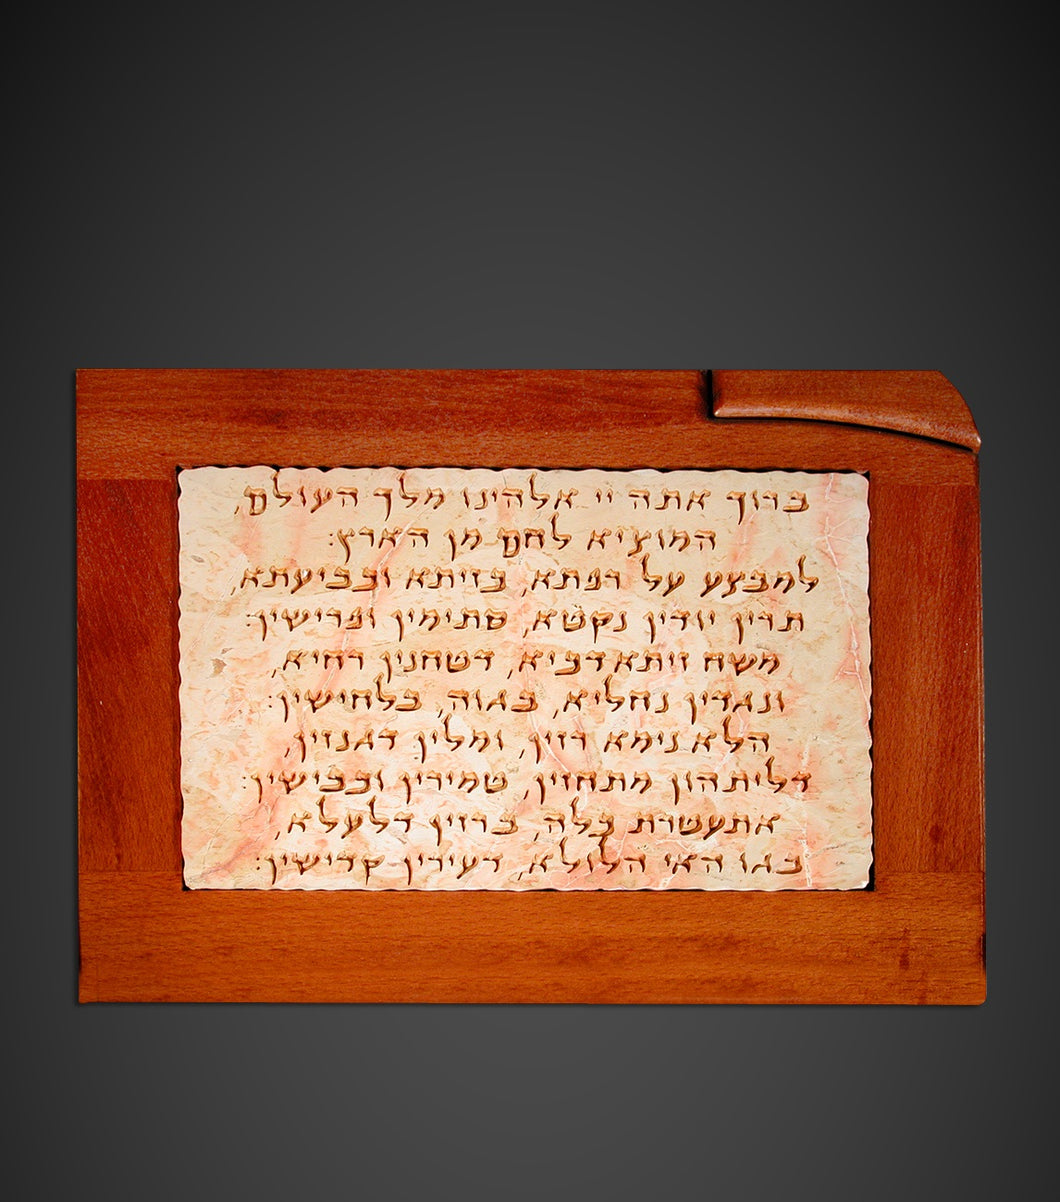 ברוך אתה יי אלהינו מלך העולם,
המוציא לחם מן הארץ:
למבצע על רפתא, כזיתא וכביעתא,
תרין יודין נקטא, סתימין ופרישין:
משח זיתא דכיא, דטחנין רחיא,
ונגדין נחליא, בגוה, בלחישין:
הלא נימא רזין, ומלין דגנזין,
דליתהון מתחזין, טמירין וכבישין:
אתעטרת כלה, ברזין דלעלא,
בגו האי הלולא, דעירין קדישין: